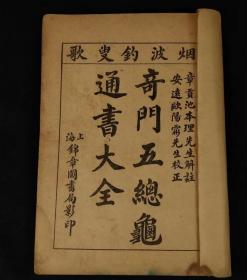 烟波釣叟歌
章貢池本理先生解註
安遠歐陽霦先生校正
奇門五總龜
通書大全
上海錦章圖書局影印